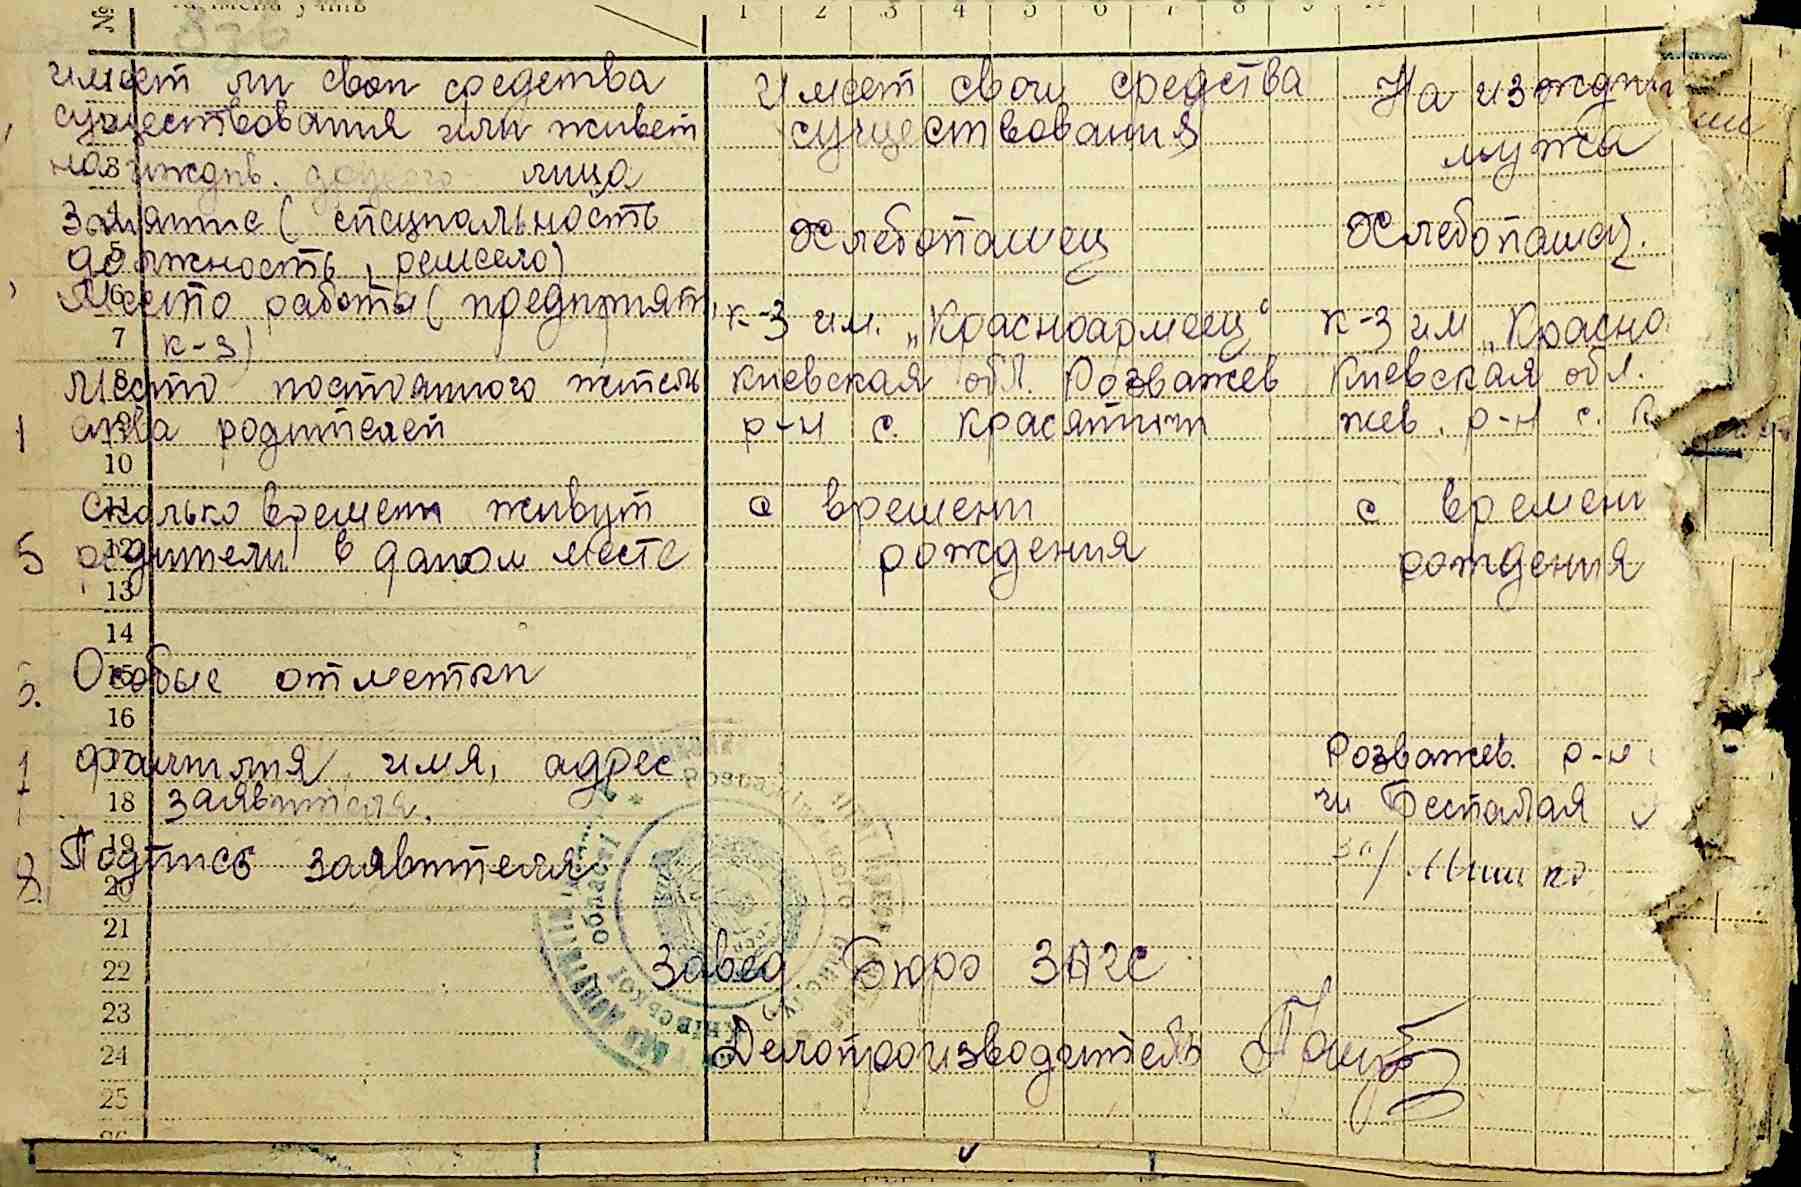 1 2 3 4 5 6 7 8 9
имеет ли свои средства Имеет свои средства На иждив
существования или живет существования мужа
на иждив. другого лица
Занятие ( специальность Хлебопашец Хлебопашец.
должность, ремесло)
Место работы ( предприят, к-з им. „Красноармеец“ к-з им „Красно
7 к-з)
Место постоянного житель Киевская обл. Розважев Киевская обл.
ства родителей р-н с. Красятичи жев. р-н с. К
10
сколько времени живут с времени с времени
5 родители в даном месте рождения рождения
13
14
Особые отметки
16
Фамилия, имя, адрес Розважев. р-н
18 заявителя. чи Беспалая
19
Подпись заявителя
20
21
22 Завед. Бюро ЗАГС
23
24 Делопроизводитель
25